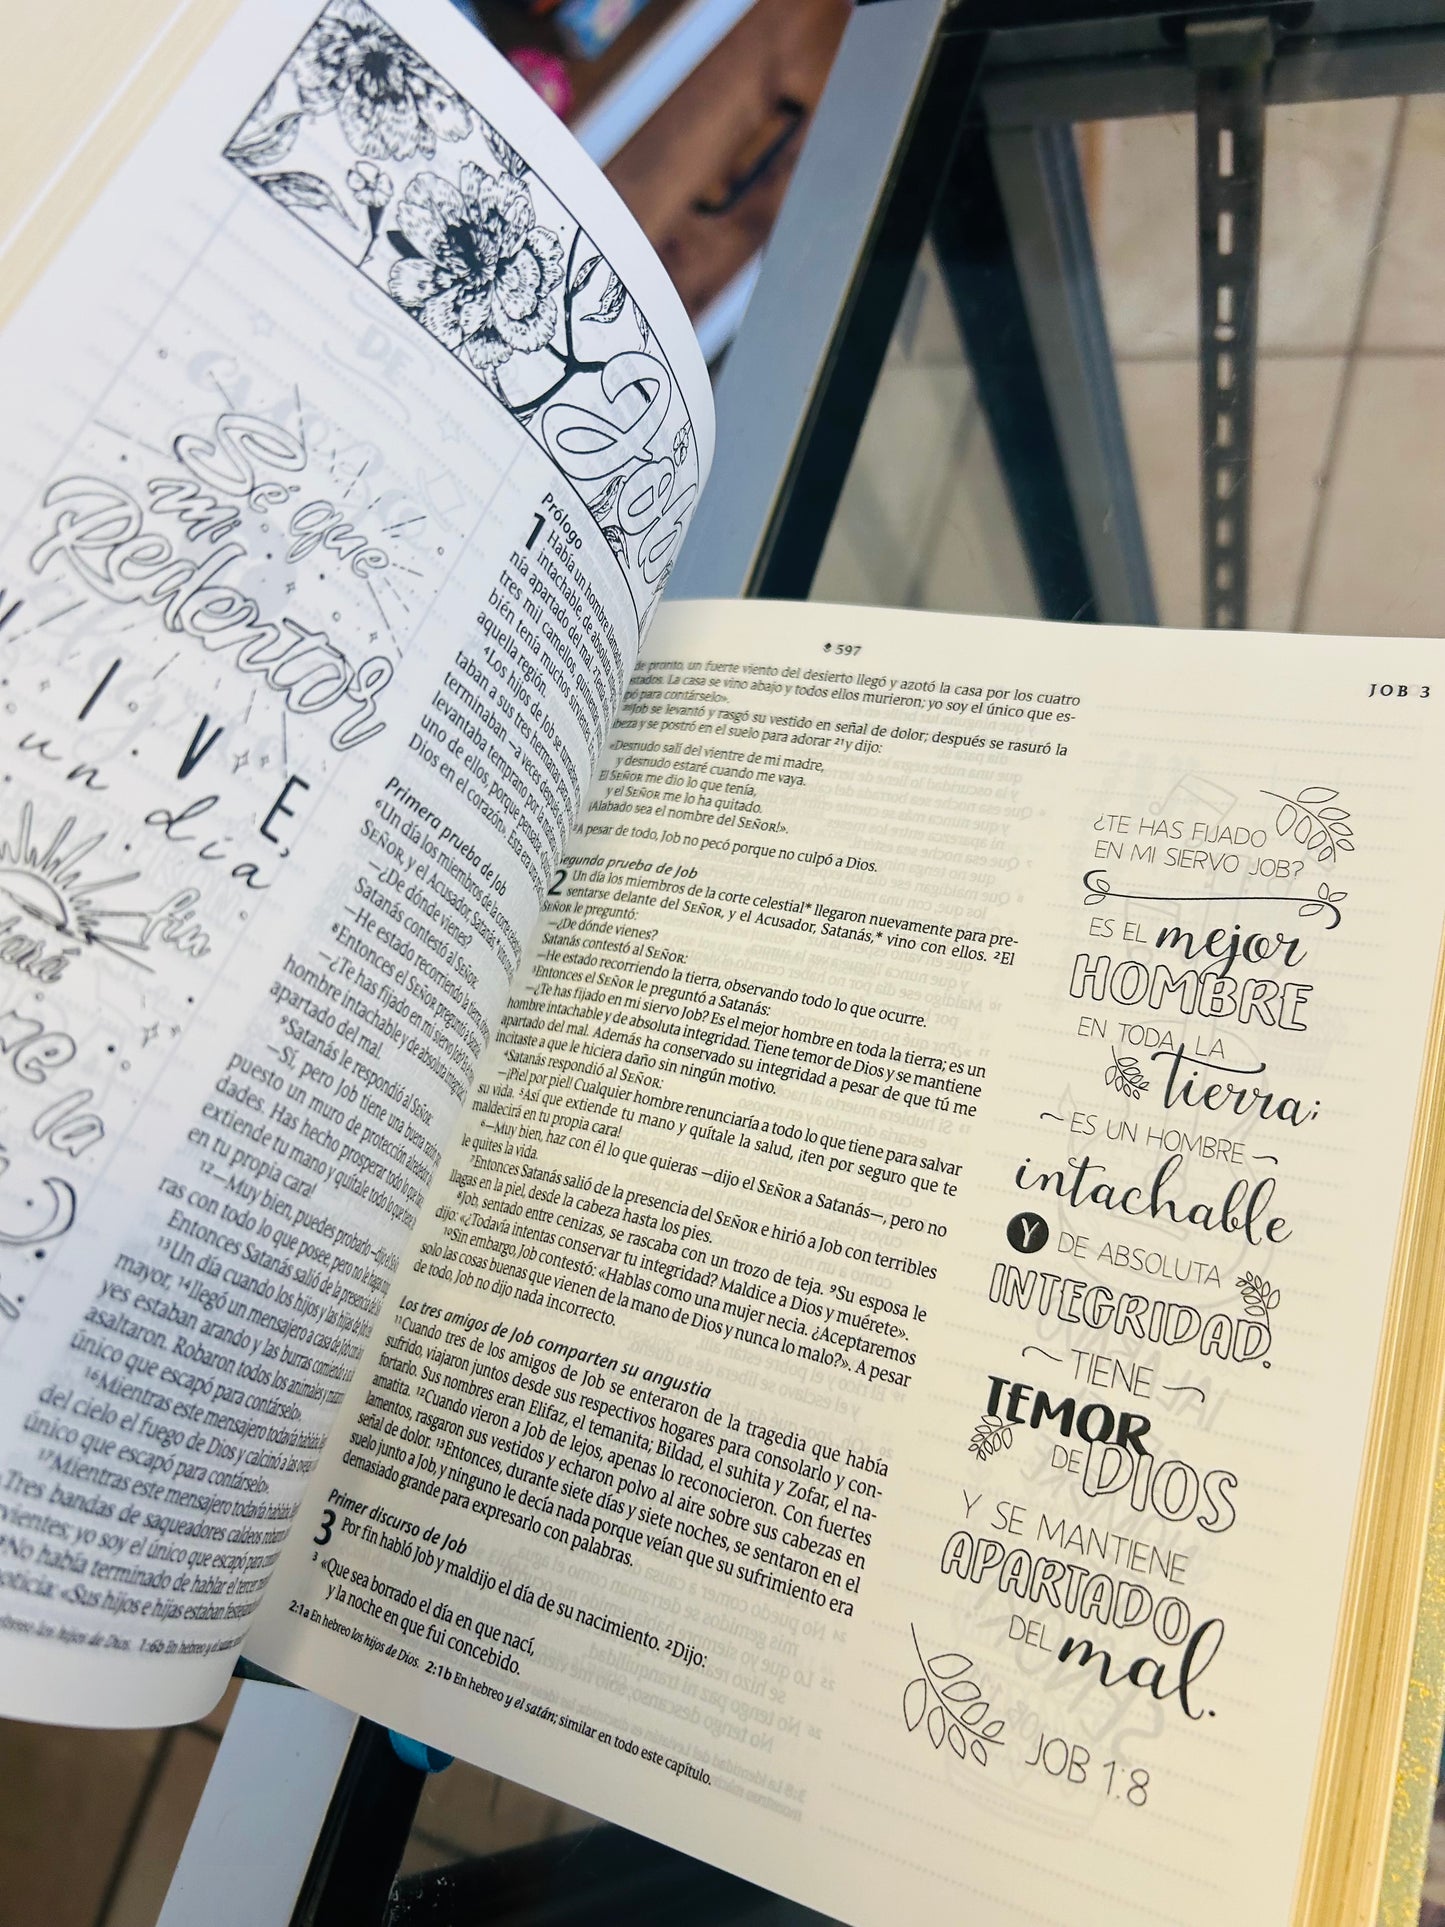 Sé que
mi
Redentor
IVE,
un día
fin
la
Job
Prólogo
1 Había un hombre llamado
intachable, de absoluta
nía apartado del mal. ²Tenía
tres mil camellos, quinientas
bién tenía muchos sirvientes
aquella región.
⁴Los hijos de Job se turnaban
taban a sus tres hermanas para
terminaban —a veces después de
levantaba temprano por la mañana
uno de ellos, porque pensaba:
Dios en el corazón». Esta era una
Primera prueba de Job
⁶Un día los miembros de la corte celestial
SEÑOR, y el Acusador, Satanás,* vino con
—¿De dónde vienes?
Satanás contestó al SEÑOR:
—He estado recorriendo la tierra,
⁸Entonces el SEÑOR preguntó a Satanás
—¿Te has fijado en mi siervo Job?
hombre intachable y de absoluta integridad
apartado del mal.
⁹Satanás le respondió al SEÑOR:
—Sí, pero Job tiene una buena razón
puesto un muro de protección alrededor
dades. Has hecho prosperar todo lo que
extiende tu mano y quítale todo lo que tiene,
en tu propia cara!
¹²—Muy bien, puedes probarlo —dijo el
ras con todo lo que posee, pero no le hagas
Entonces Satanás salió de la presencia del
¹³Un día cuando los hijos y las hijas de Job
mayor, ¹⁴llegó un mensajero a casa de Job
yes estaban arando y las burras comiendo a su
asaltaron. Robaron todos los animales y mataron
único que escapó para contárselo».
¹⁶Mientras este mensajero todavía hablaba,
del cielo el fuego de Dios y calcinó a las
único que escapó para contárselo».
¹⁷Mientras este mensajero todavía hablaba,
Tres bandas de saqueadores caldeos robaron
vientes; yo soy el único que escapó para
No había terminado de hablar el tercer
noticia: «Sus hijos e hijas estaban
los hijos de Dios. 1:6b En hebreo y el satán;
597
JOB 3
de pronto, un fuerte viento del desierto llegó y azotó la casa por los cuatro
costados. La casa se vino abajo y todos ellos murieron; yo soy el único que es-
para contárselo».
²⁰Job se levantó y rasgó su vestido en señal de dolor; después se rasuró la
cabeza y se postró en el suelo para adorar ²¹y dijo:
«Desnudo salí del vientre de mi madre,
y desnudo estaré cuando me vaya.
El SEÑOR me dio lo que tenía,
y el SEÑOR me lo ha quitado.
¡Alabado sea el nombre del SEÑOR!».
²²A pesar de todo, Job no pecó porque no culpó a Dios.
Segunda prueba de Job
2 Un día los miembros de la corte celestial* llegaron nuevamente para pre-
sentarse delante del SEÑOR, y el Acusador, Satanás,* vino con ellos. ²El
SEÑOR le preguntó:
—¿De dónde vienes?
Satanás contestó al SEÑOR:
—He estado recorriendo la tierra, observando todo lo que ocurre.
³Entonces el SEÑOR le preguntó a Satanás:
—¿Te has fijado en mi siervo Job? Es el mejor hombre en toda la tierra; es un
hombre intachable y de absoluta integridad. Tiene temor de Dios y se mantiene
apartado del mal. Además ha conservado su integridad a pesar de que tú me
incitaste a que le hiciera daño sin ningún motivo.
⁴Satanás respondió al SEÑOR:
—¡Piel por piel! Cualquier hombre renunciaría a todo lo que tiene para salvar
su vida. ⁵Así que extiende tu mano y quítale la salud, ¡ten por seguro que te
maldecirá en tu propia cara!
⁶—Muy bien, haz con él lo que quieras —dijo el SEÑOR a Satanás—, pero no
le quites la vida.
⁷Entonces Satanás salió de la presencia del SEÑOR e hirió a Job con terribles
llagas en la piel, desde la cabeza hasta los pies.
⁸Job, sentado entre cenizas, se rascaba con un trozo de teja. ⁹Su esposa le
dijo: «¿Todavía intentas conservar tu integridad? Maldice a Dios y muérete».
¹⁰Sin embargo, Job contestó: «Hablas como una mujer necia. ¿Aceptaremos
solo las cosas buenas que vienen de la mano de Dios y nunca lo malo?». A pesar
de todo, Job no dijo nada incorrecto.
Los tres amigos de Job comparten su angustia
¹¹Cuando tres de los amigos de Job se enteraron de la tragedia que había
sufrido, viajaron juntos desde sus respectivos hogares para consolarlo y con-
fortarlo. Sus nombres eran Elifaz, el temanita; Bildad, el suhita y Zofar, el na-
amatita. ¹²Cuando vieron a Job de lejos, apenas lo reconocieron. Con fuertes
lamentos, rasgaron sus vestidos y echaron polvo al aire sobre sus cabezas en
señal de dolor. ¹³Entonces, durante siete días y siete noches, se sentaron en el
suelo junto a Job, y ninguno le decía nada porque veían que su sufrimiento era
demasiado grande para expresarlo con palabras.
Primer discurso de Job
3 Por fin habló Job y maldijo el día de su nacimiento. ²Dijo:
³ «Que sea borrado el día en que nací,
y la noche en que fui concebido.
2:1a En hebreo los hijos de Dios. 2:1b En hebreo y el satán; similar en todo este capítulo.
¿TE HAS FIJADO
EN MI SIERVO JOB?
ES EL mejor
HOMBRE
EN TODA LA
tierra;
ES UN HOMBRE
intachable
Y DE ABSOLUTA
INTEGRIDAD.
TIENE
TEMOR
DE DIOS
Y SE MANTIENE
APARTADO
DEL mal.
JOB 1:8